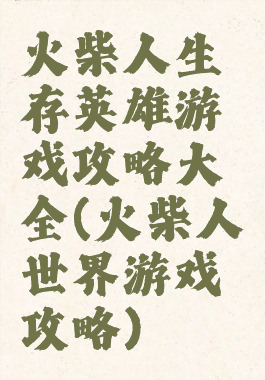 火柴人生
存英雄游
戏攻略大
全(火柴人
世界游戏
攻略)